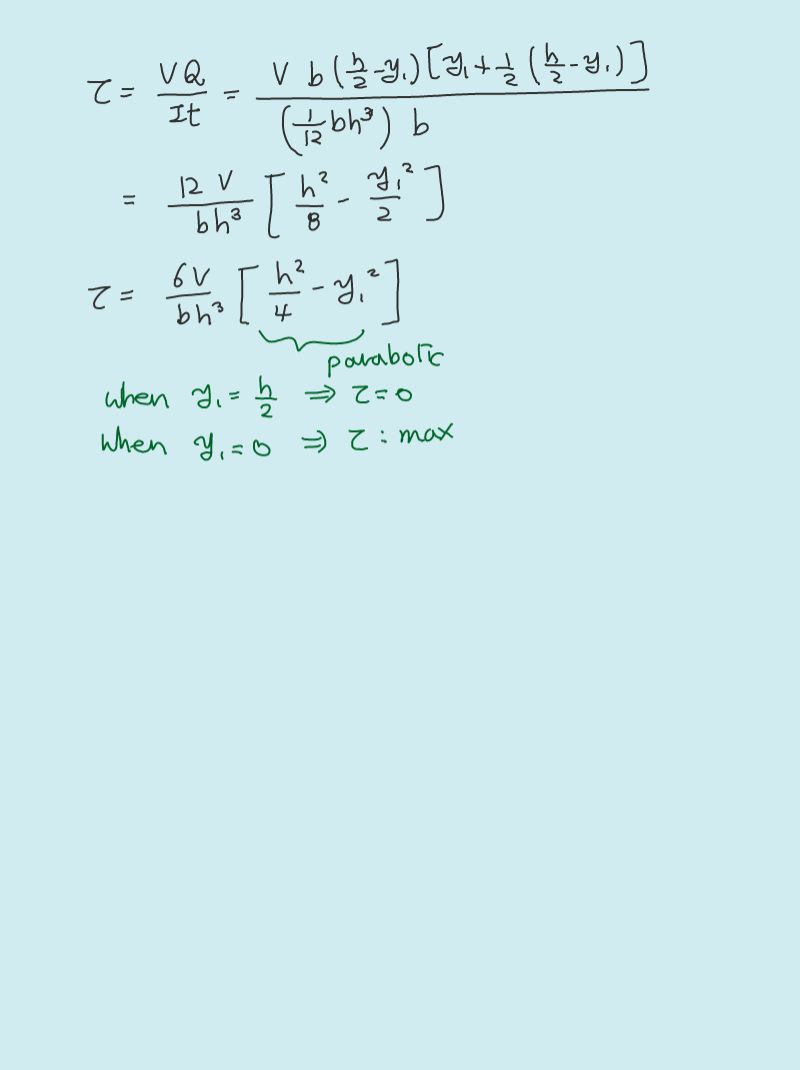 τ = VQ/It = V b (h/2 - y₁) [y₁ + 1/2 (h/2 - y₁)] / (1/12 bh³) b
= 12 V/bh³ [h²/8 - y₁²/2]
τ = 6V/bh³ [h²/4 - y₁²]
parabolic
when y₁ = h/2 ⇒ τ = 0
When y₁ = 0 ⇒ τ : max